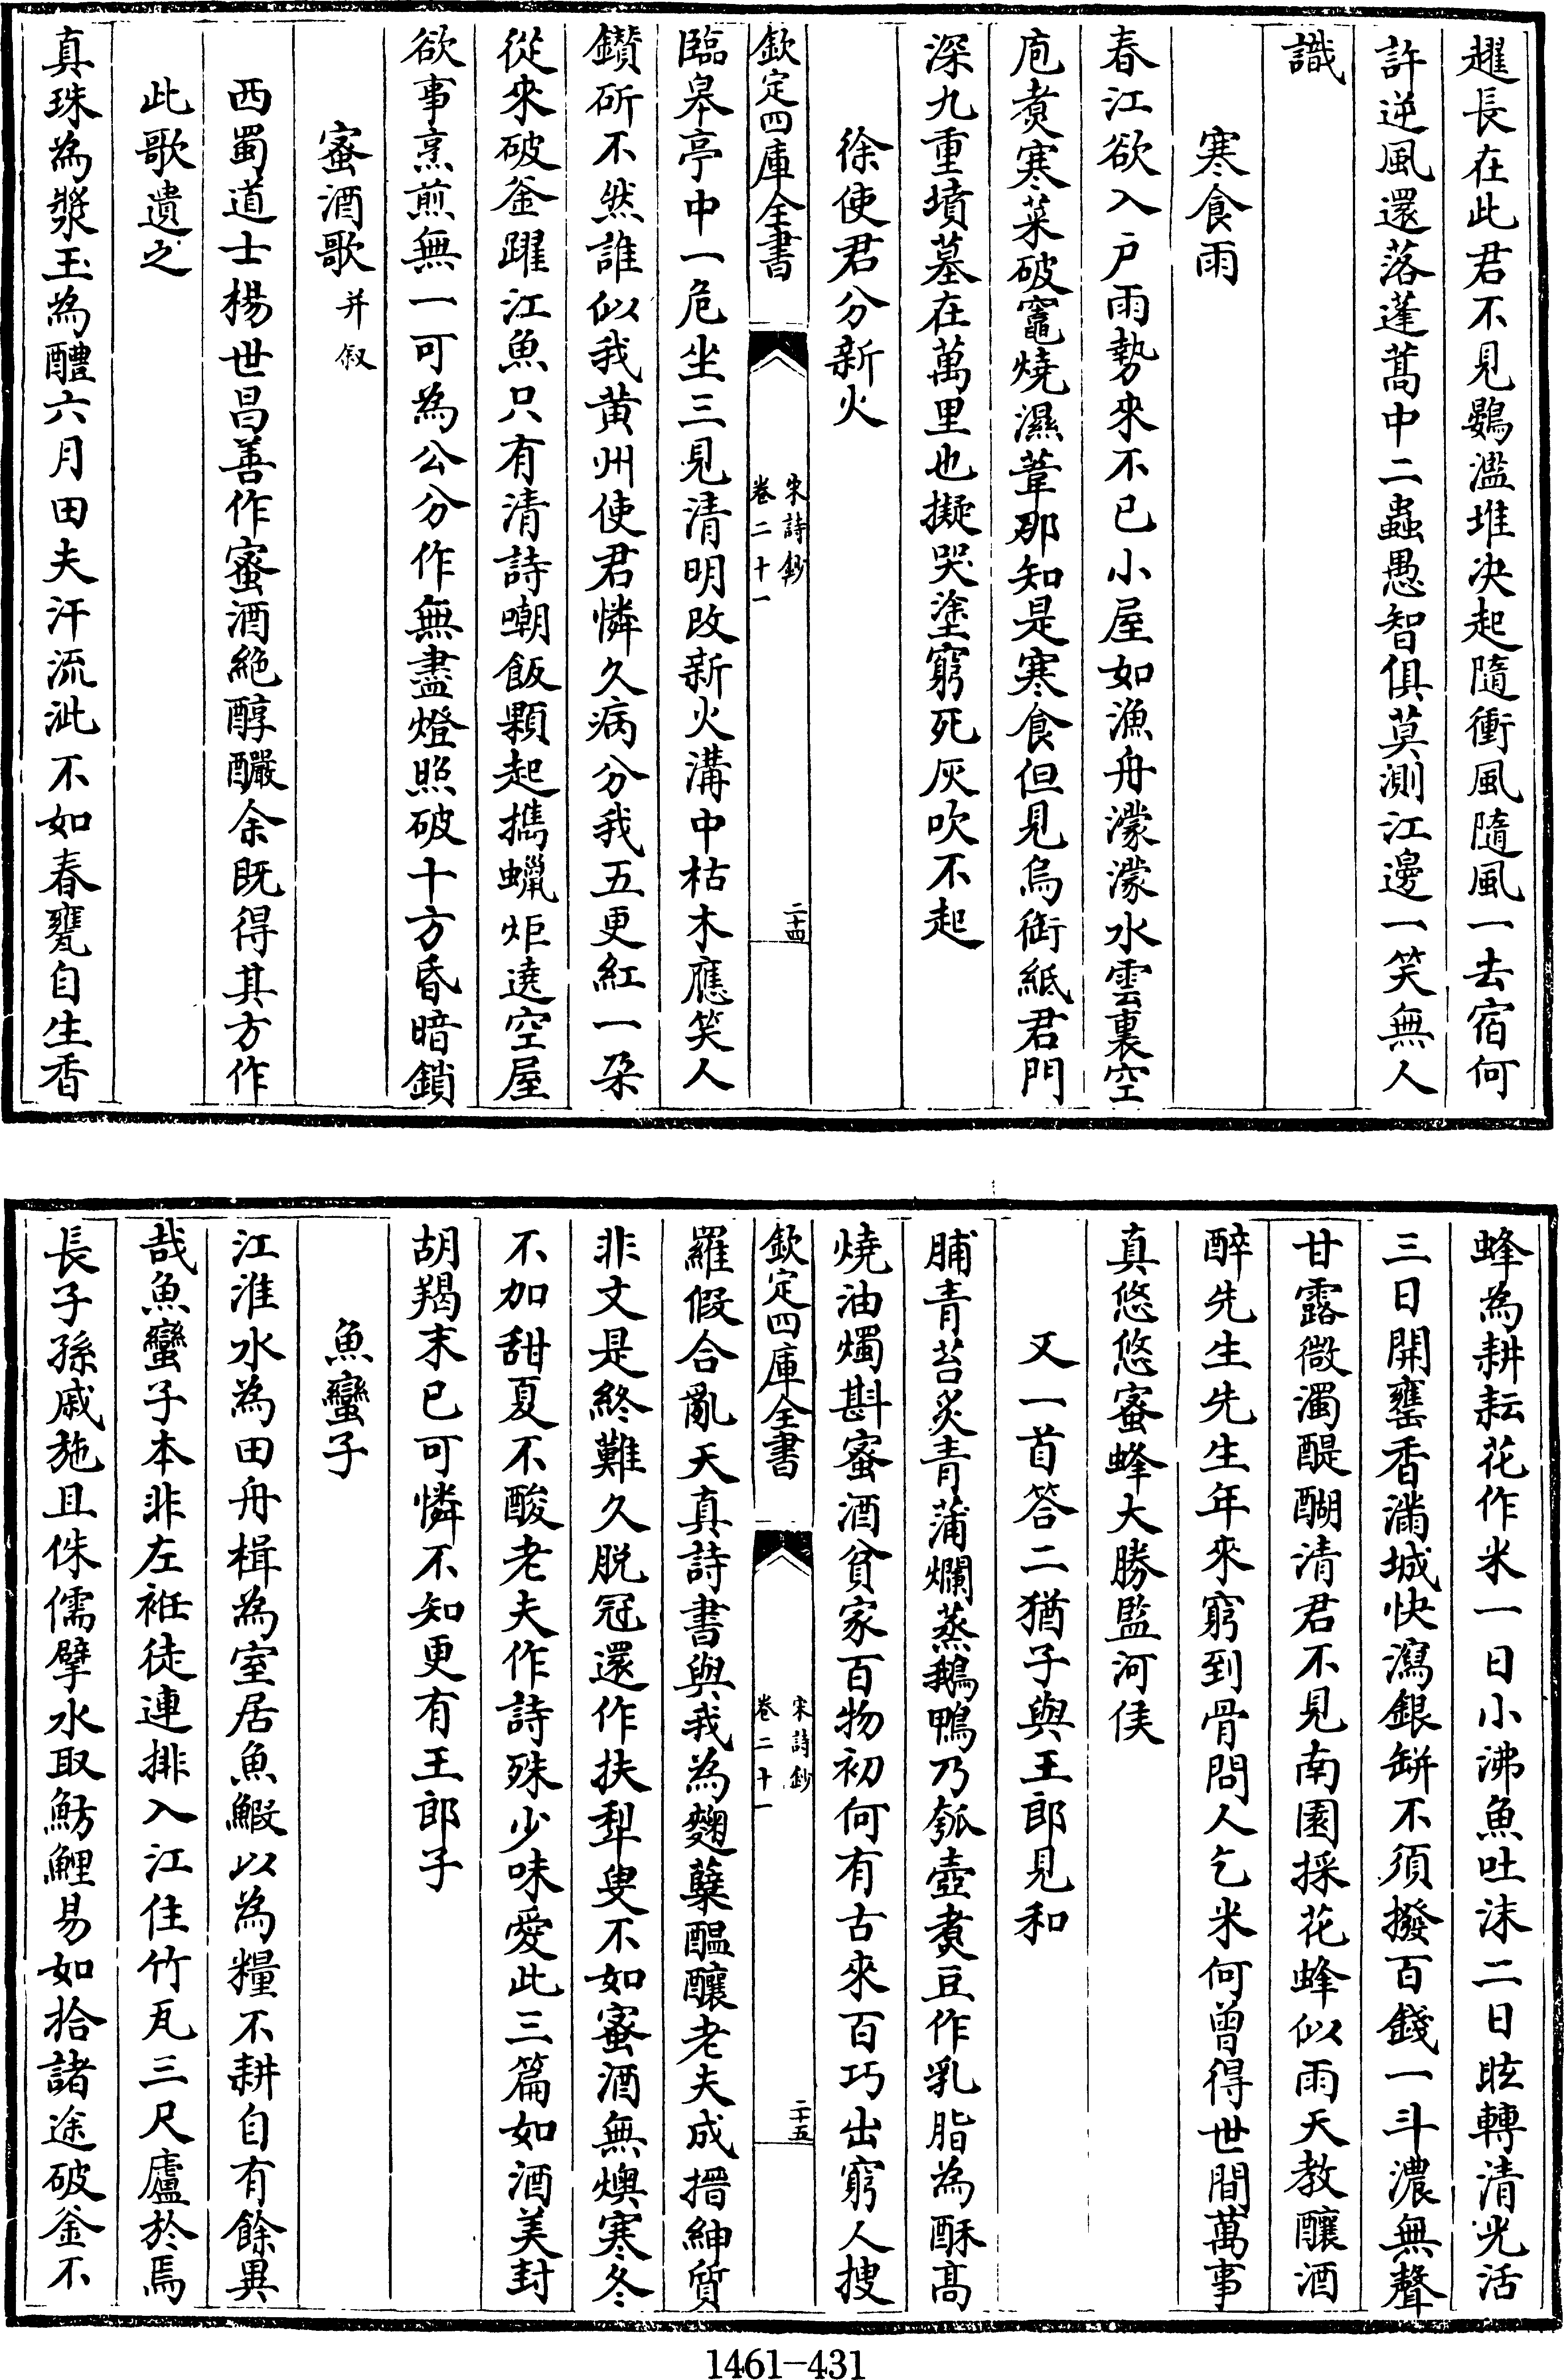 趯長在此君不見鷃濫堆决起隨衝風隨風一去宿何
許逆風還落蓬蒿中二蟲愚智俱莫測江邊一笑無人
識
寒食雨
春江欲入户雨勢來不已小屋如漁舟濛濛水雲裏空
庖煑寒菜破竈燒濕葦那知是寒食但見烏銜紙君門
深九重墳墓在萬里也擬哭塗窮死灰吹不起
徐使君分新火
欽定四庫全書
宋詩鈔
卷二十一
二十四
臨皋亭中一危坐三見清明改新火溝中枯木應笑人
鑚斫不然誰似我黄州使君憐久病分我五更紅一朶
從來破釜躍江魚只有清詩嘲飯顆起攜蠟炬遶空屋
欲事烹煎無一可為公分作無盡燈照破十方昏暗鎖
蜜酒歌并叙
西蜀道士楊世昌善作蜜酒絶醇釅余既得其方作
此歌遺之
真珠為漿玉為醴六月田夫汗流泚不如春甕自生香
蜂為耕耘花作米一日小沸魚吐沫二日眩轉清光活
三日開罋香滿城快瀉銀缾不須撥百錢一斗濃無聲
甘露微濁醍醐清君不見南園採花蜂似雨天教釀酒
醉先生先生年來窮到骨問人乞米何曾得世間萬事
真悠悠蜜蜂大勝監河侯
又一首答二猶子與王郎見和
脯青苔炙青蒲爛蒸鵝鴨乃瓠壺煑豆作乳脂為酥高
燒油燭斟蜜酒貧家百物初何有古來百巧出窮人搜
欽定四庫全書
宋詩鈔
卷二十一
二十五
羅假合亂天真詩書與我為麴糵醖釀老夫成搢紳質
非文是終難久脱冠還作扶犁叟不如蜜酒無燠寒冬
不加甜夏不酸老夫作詩殊少味愛此三篇如酒美封
胡羯末已可憐不知更有王郎子
魚蠻子
江淮水為田舟楫為室居魚鰕以為糧不耕自有餘異
哉魚蠻子本非左袵徒連排入江住竹瓦三尺廬於焉
長子孫戚施且侏儒擘水取魴鯉易如拾諸途破釜不
1461-431